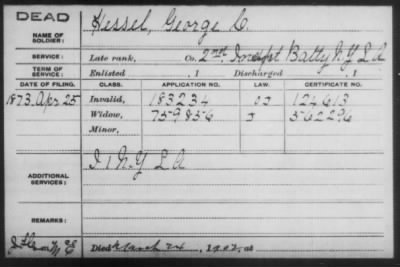 DEAD
NAME OF SOLDIER: Hessel, George C.
SERVICE: Late rank, Co. 2nd Batty N.Y L A
TERM OF SERVICE: Enlisted , 1 Discharged , 1
DATE OF FILING. CLASS. APPLICATION NO. LAW. CERTIFICATE NO.
1873, Apr 25 Invalid, 183234 124613
Widow, 759856 562296
Minor,
ADDITIONAL SERVICES: I 1 N.Y L A
REMARKS:
Died March 24, 1902, at